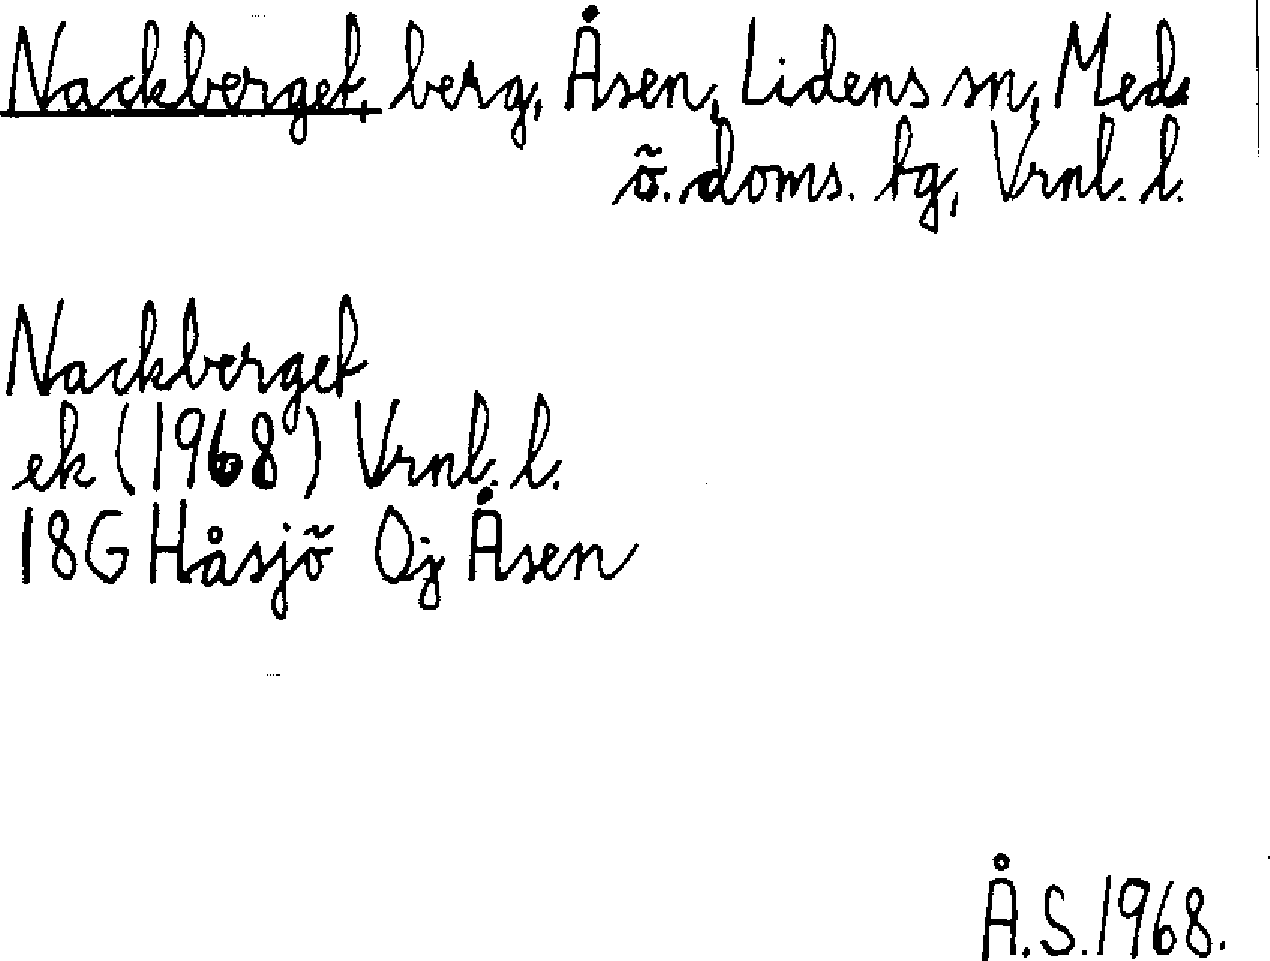 Nackberget, berg, Åsen, Lidens sn, Med.
ö. doms. tg, Vrnl. l.
Nackberget
ek (1968) Vrnl. l.
18G Håsjö Oj Åsen
Å.S. 1968.